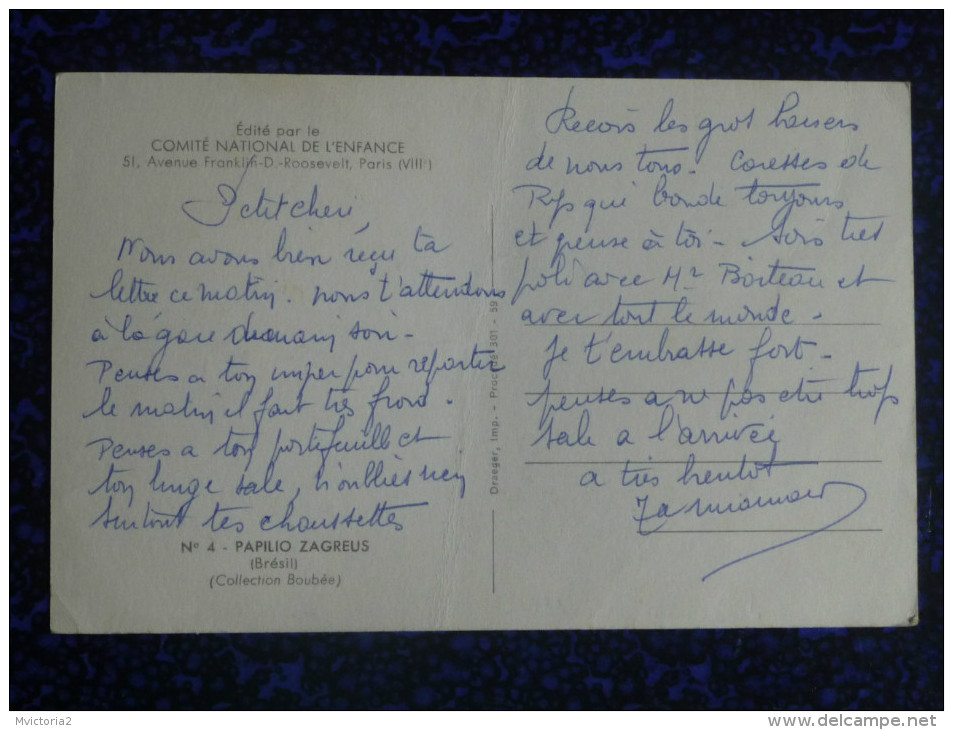 Édité par le
COMITÉ NATIONAL DE L'ENFANCE
51, Avenue Franklin-D.-Roosevelt, Paris (VIIIe)
Petit cheri,
Nous avons bien reçu ta
lettre ce matin. nous t'attendons
à la gare demain soir -
Penses a ton imper pour repartir
le matin il fait très froid.
Penses a ton portefeuille et
ton linge sale, n'oublies rien
surtout tes chaussettes
Nº 4 - PAPILIO ZAGREUS
(Brésil)
(Collection Boubée)
Draeger, Imp. - Procédé 301 - 59
Recois les gros baisers
de nous tous. Caresses de
qui toujours
et pense à toi - Sois très
poli avec Mr Boiteau et
avec tout le monde -
Je t'embrasse fort -
penses a ne pas etre trop
sale a l'arrivée
a très bientot
Ta maman
Mvictoria2
http://mvictoria2.delcampe.net